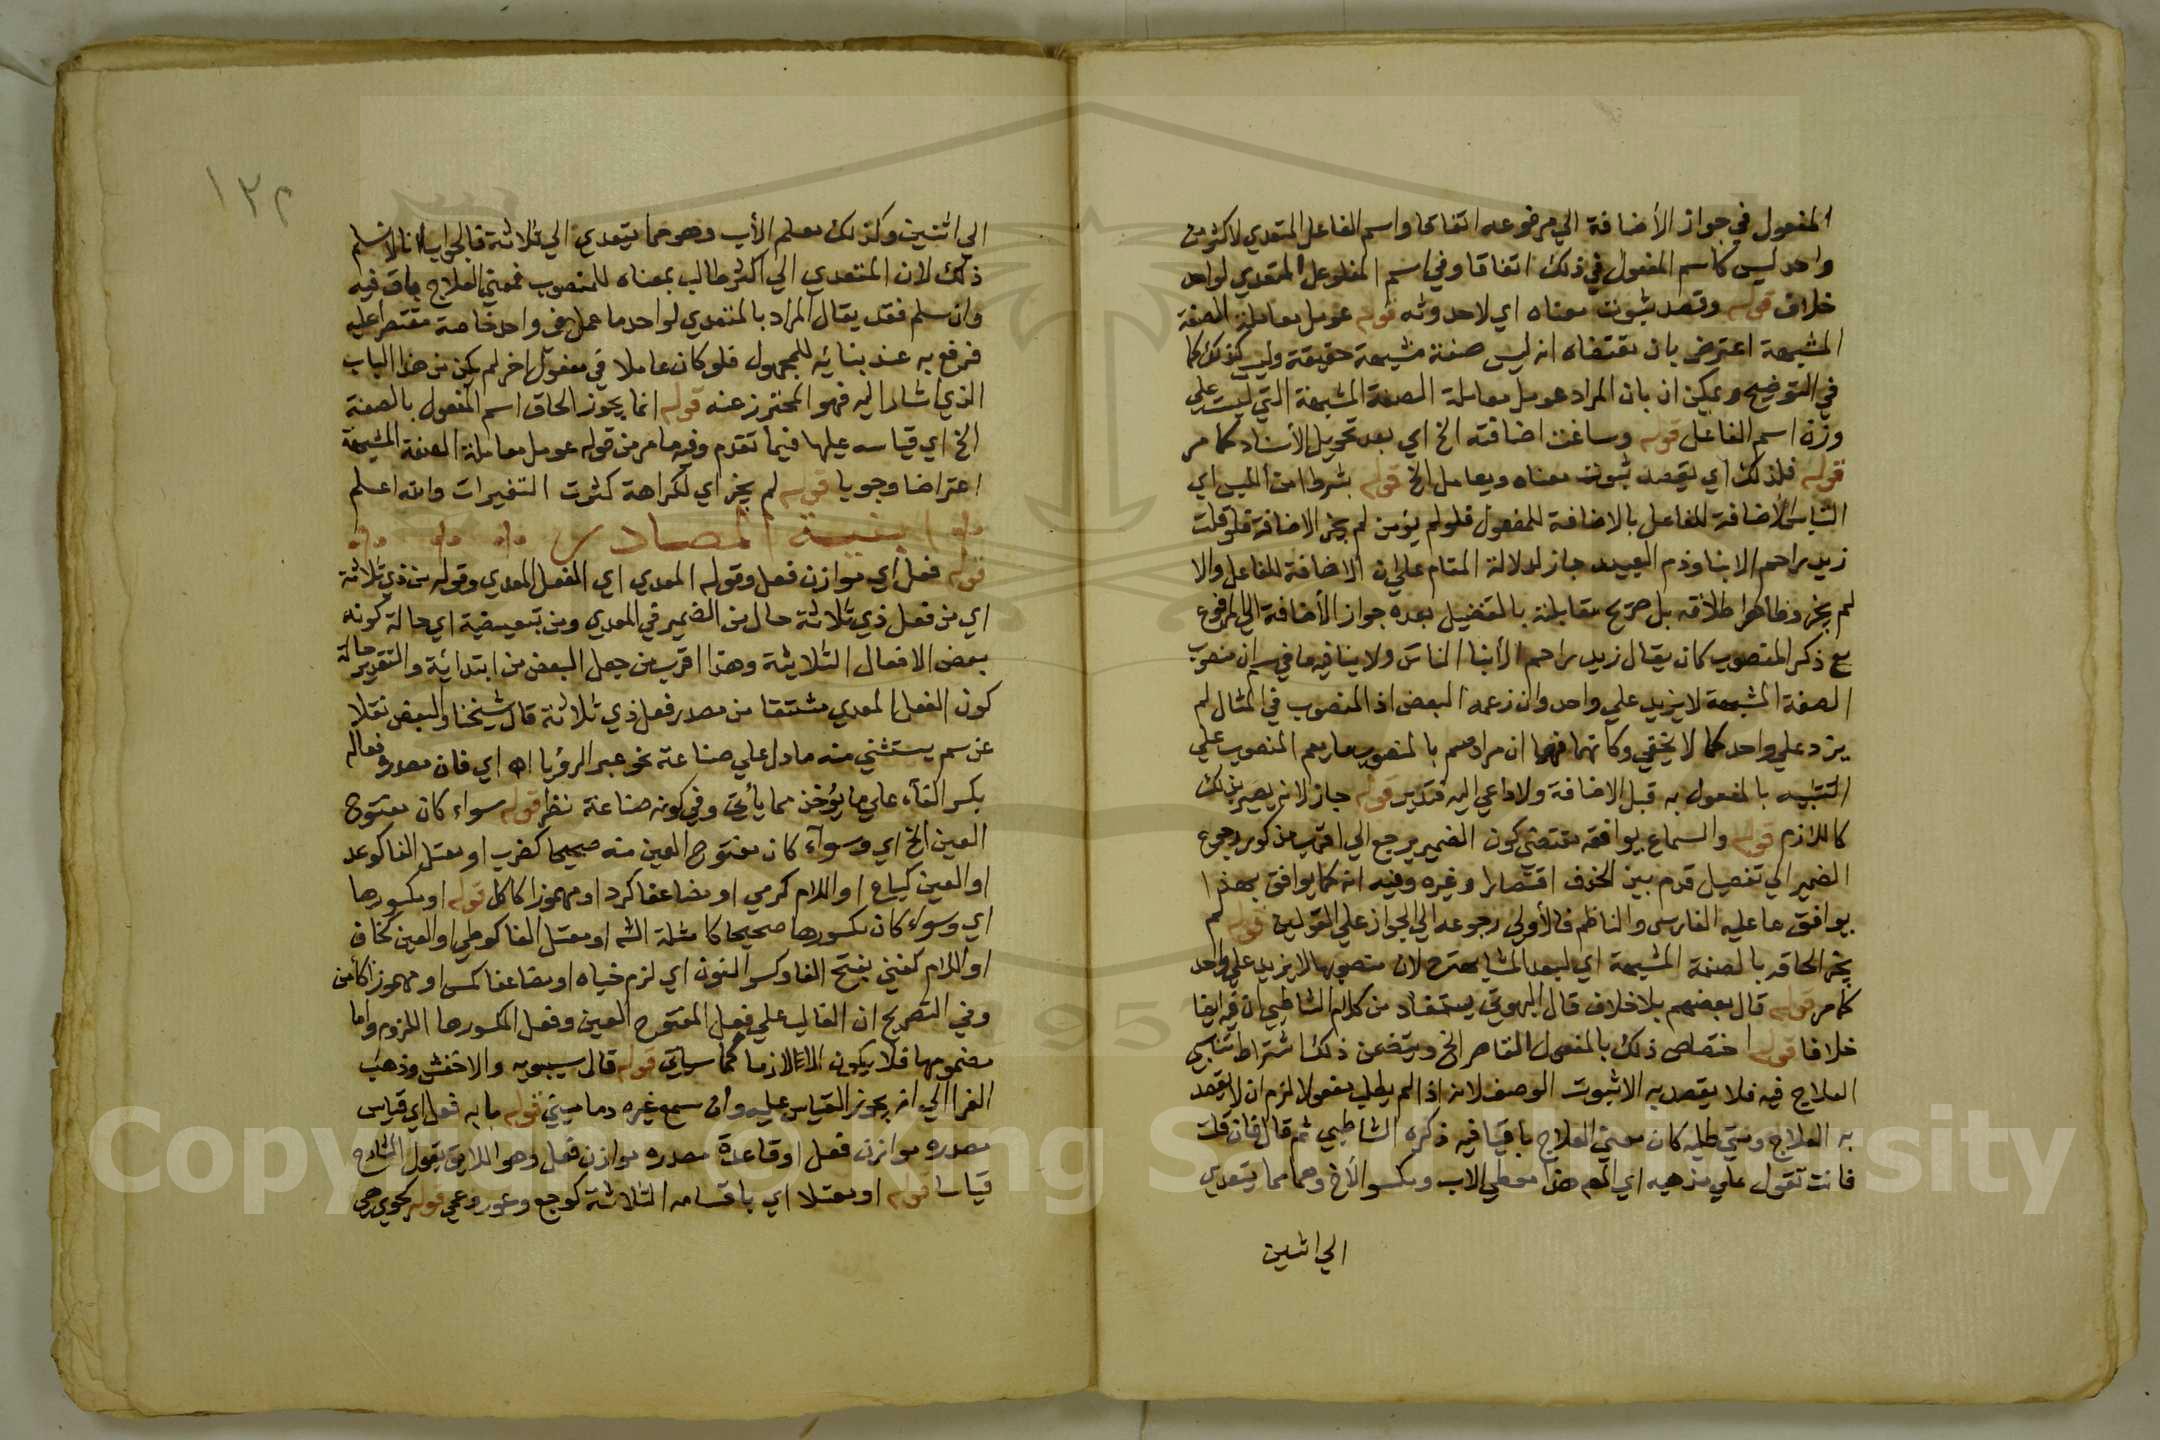 المفعول في جواز الأضافة الي مرفوعه اتفاقا واسم الفاعل المتعدي لاكثر من
واحد ليس كاسم المفعول في ذلك اتفاقا وفي اسم الفاعل المتعدي لواحد
خلاف قوله وقصد ثبوت معناه اي لاحدوثه قوله عومل معاملة الصفة
المشبهة اعترض بان مقتضاه انه ليس صفة مشبهة حقيقة وليس كذلك كما
في التوضيح ويمكن ان بان المراد عومل معاملة الصفة المشبهة التي ليست علي
وزن اسم الفاعل قوله وساغت اضافته الخ اي بعد تحويل الأسناد كما مر
قوله فلذلك اي يقصد ثبوت معناه ويعامل الخ قوله بشرط امن اللبس اي
التباس الأضافة للفاعل بالاضافة للمفعول فلو لم يؤمن لم يجز الاضافة فلو قلت
زيد راحم الابنا وذم العبيد جاز لدلالة المقام علي ان الاضافة للفاعل والا
لم يجز وظاهر اطلاقه بل صريح مقابلته بالتفضيل بعده جواز الأضافة الي المرفوع
مع ذكر المنصوب كان يقال زيد راحم الأبنا الناس ولا ينافيه ما في سم ان منصوب
الصفة المشبهة لا يزيد علي واحد وان زعمه البعض اذ المنصوب في المثال لم
يزد علي واحد كما لا يخفي وكانهما فهما ان مرادهم بالمنصوب ما يعم المنصوب علي
التشبيه بالمفعول به قبل الاضافة ولا داعي اليه فتدبر قوله جاز لانه يصير بذلك
كاللازم قوله والسماع يوافقه مقتضي كون الضمير يرجع الي اقرب مذكور رجوع
الضمير الي تفصيل قوم بين الحذف اقتصارا وغيره وفيه انه كما يوافق بهذا
يوافق ما عليه الفارسي والناظم فالأولي رجوعه الي الجواز علي القولين قوله لم
يجز الحاقه بالصفة المشبهة اي لبعد المشابهة ح لان منصوبها لا يزيد علي واحد
كما مر قوله قال بعضهم بلا خلاف قال البهوتي يستفاد من كلام الشاطبي ان فيه ايضا
خلافا قوله اختصاص ذلك بالمفعول القاصر الخ ويتضمن ذلك اشتراط تناسي
العلاج فيه فلا يقصد به الا ثبوت الوصف لانه اذا لم يطلب مفعولا لزم ان لا يقصد
به العلاج ومتي طلبه كان معني العلاج باقيا فيه ذكره الشاطبي ثم قال فان قلت
فانت تقول علي مذهبه اي المص هذا معطي الاب ومكسو الأخ وهما مما يتعدي
الي اثنين
١٣٢
الي اثنين وكذلك معلم الأب وهو مما يتعدي الي ثلاثة فالجواب انا لا نسلم
ذلك لان المتعدي الي اكثر طالب بمعناه للمنصوب فمعني العلاج باق فيه
وان سلم فقد يقال المراد بالمتعدي لواحد ما عمل في واحد خاصة مقتصرا عليه
فرفع به عند بنائه للمجهول فلو كان عاملا في مفعول اخر لم يكن من هذا الباب
الذي اشار اليه فهو المحترز عنه قوله انما يجوز الحاق اسم المفعول بالصفة
الخ اي قياسه عليها فيما تقدم وفيه ما مر من قوله عومل معاملة الصفة المشبهة
اعتراضا وجوبا قوله لم يجز اي لكراهة كثرت التغيرات والله اعلم
ابنية المصادر
قوله فعل اي موازن فعل وقوله المعدي اي الفعل المعدي وقوله من ذي ثلاثة
اي من فعل ذي ثلاثة حال من الضمير في المعدي ومن تبعيضية اي حالة كونه
بعض الافعال الثلاثية وهذا اقرب من جعل البعض من ابتدائية والتقدير حالة
كون الفعل المعدي مشتقا من مصدر فعل ذي ثلاثة قال شيخنا والبعض نقلا
عن سم يستثني منه ما دل علي صناعة نحو عبر الرؤيا اه اي فان مصدره فعاله
بكسر الفاء علي ما يؤخذ مما يأتي وفي كونه صناعة نظر قوله سواء كان مفتوح
العين الخ اي وسواء كان مفتوح العين منه صحيحا كضرب او معتل الفا كوعد
او العين كباع او اللام كرمي او مضاعفا كرد او مهموزا كاكل قوله او مكسورها
اي وسواء كان مكسورها صحيحا كامثلة الش او معتل الفا كوطي او العين كخاف
او اللام كفني بفتح الفا وكسر النون اي لزم خباه او مضاعفا كمس او مهموزا كأمن
وفي التصريح ان الغالب علي فعل المفتوح العين وفعل المكسورها اللزوم واما
مضمومها فلا يكون الا لازما كما سيأتي قوله قال سيبويه والاخفش وذهب
الفرا الي انه يجوز القياس عليه وان سمع غيره دماميني قوله ما به فعل اي قياس
مصدره موازن فعل او قاعدة مصدره موازن فعل وهو اللايق بقول الشارح
قياسا قوله او معتلا اي باقسامه الثلاثة كوجع وعور وعمي قوله كجوي هي